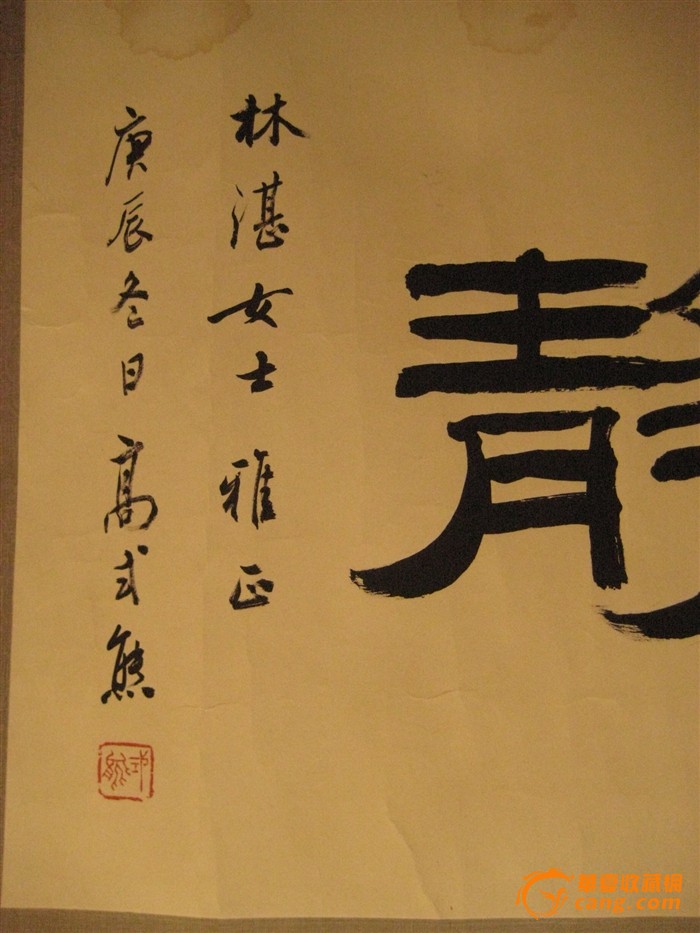 靜
林湛女士雅正
庚辰冬日高式熊
式熊
華夏收藏網
cang.com